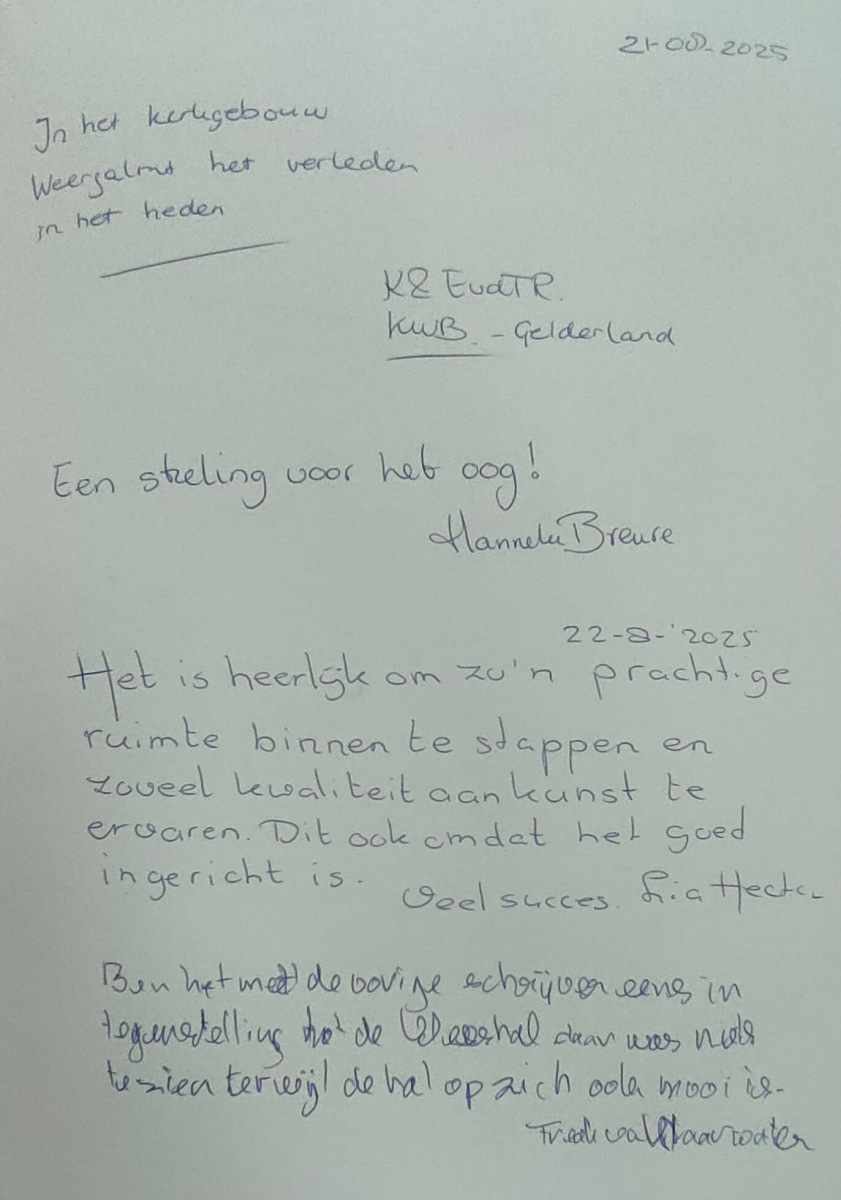 21-08-2025
In het kerkgebouw
Weergalmt het verleden
in het heden
KWB. - Gelderland
Een streling voor het oog!
Hanneke Breure
22-8-'2025
Het is heerlijk om zo'n prachtige
ruimte binnen te stappen en
zoveel kwaliteit aan kunst te
ervaren. Dit ook omdat het goed
ingericht is.
Veel succes. Ria
Ben het met de vorige schrijver eens in
tegenstelling tot de daar was niets
te zien terwijl de hal op zich ook mooi is.